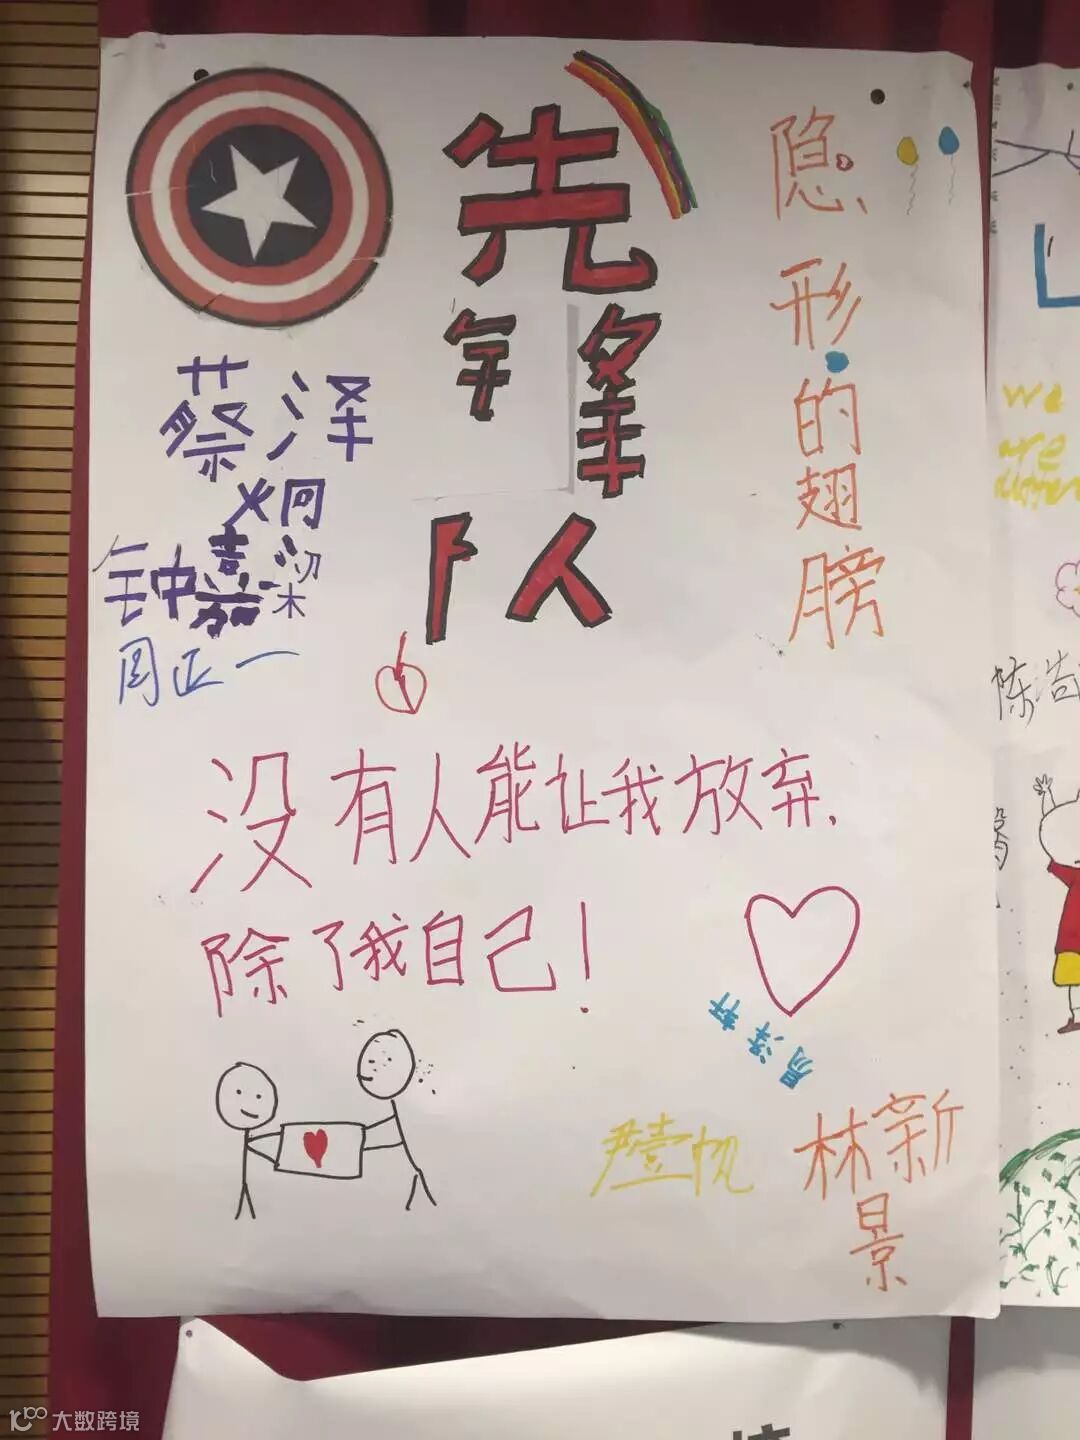 先
锋
队
隐形的翅膀
蔡泽炯
钟嘉梁
周正一
没有人能让我放弃,
除了我自己!
易泽轩
尹壹帆
林新景
we
are
陈浩
大数跨境